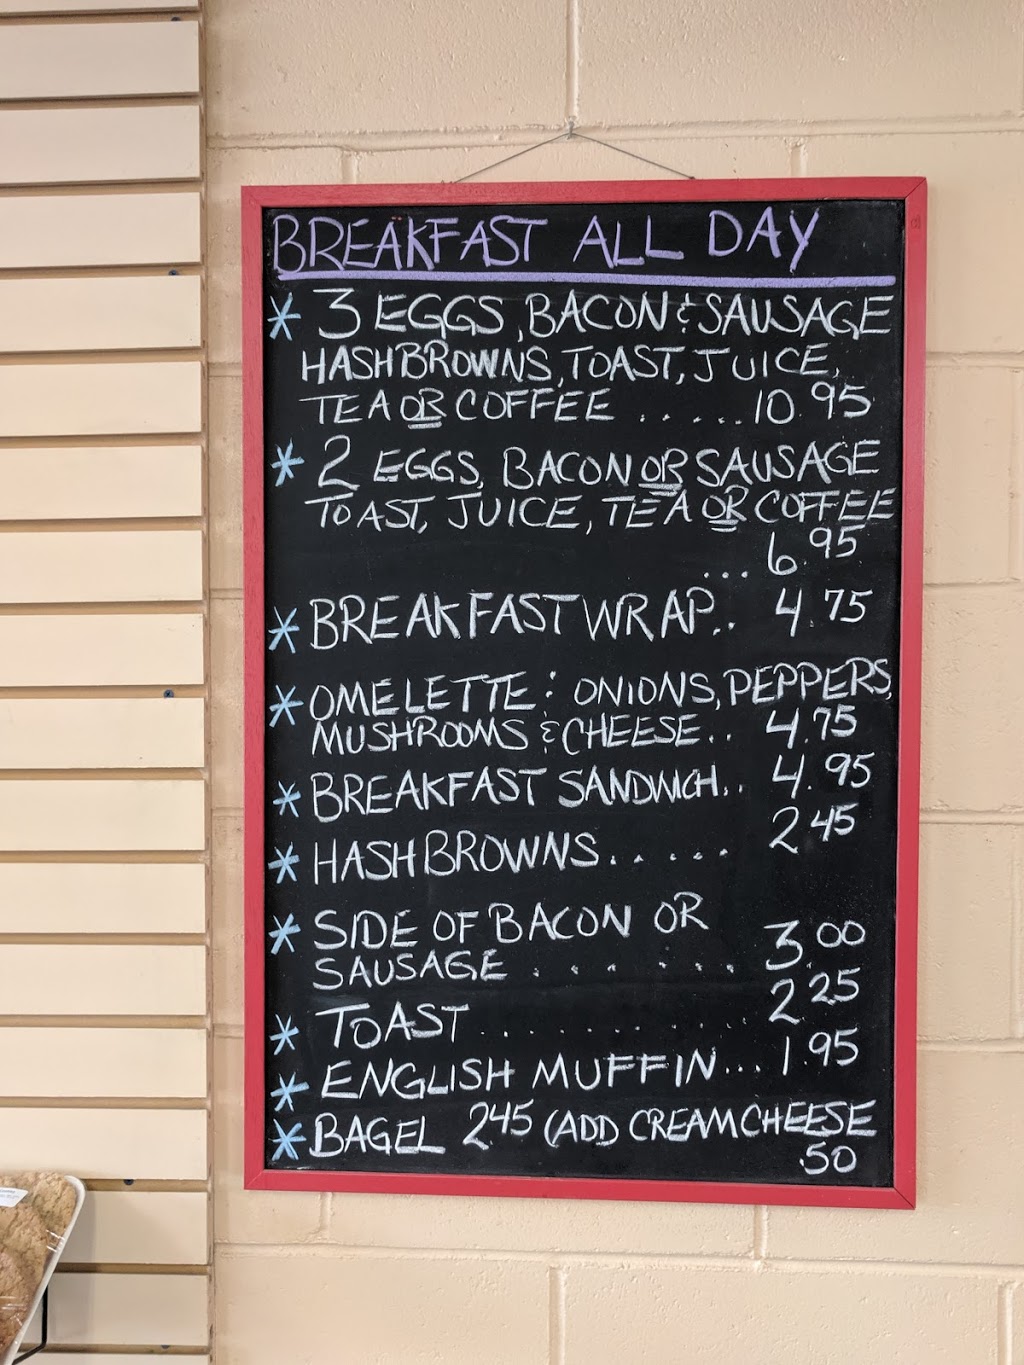 BREAKFAST ALL DAY
* 3 EGGS, BACON & SAUSAGE
HASHBROWNS, TOAST, JUICE,
TEA OR COFFEE ..... 10.95
* 2 EGGS, BACON OR SAUSAGE
TOAST, JUICE, TEA OR COFFEE
... 6.95
* BREAKFAST WRAP.. 4.75
* OMELETTE: ONIONS, PEPPERS,
MUSHROOMS & CHEESE.. 4.75
* BREAKFAST SANDWICH.. 4.95
* HASHBROWNS..... 2.45
* SIDE OF BACON OR
SAUSAGE ....... 3.00
* TOAST.......... 2.25
* ENGLISH MUFFIN... 1.95
* BAGEL 2.45 (ADD CREAMCHEESE
.50